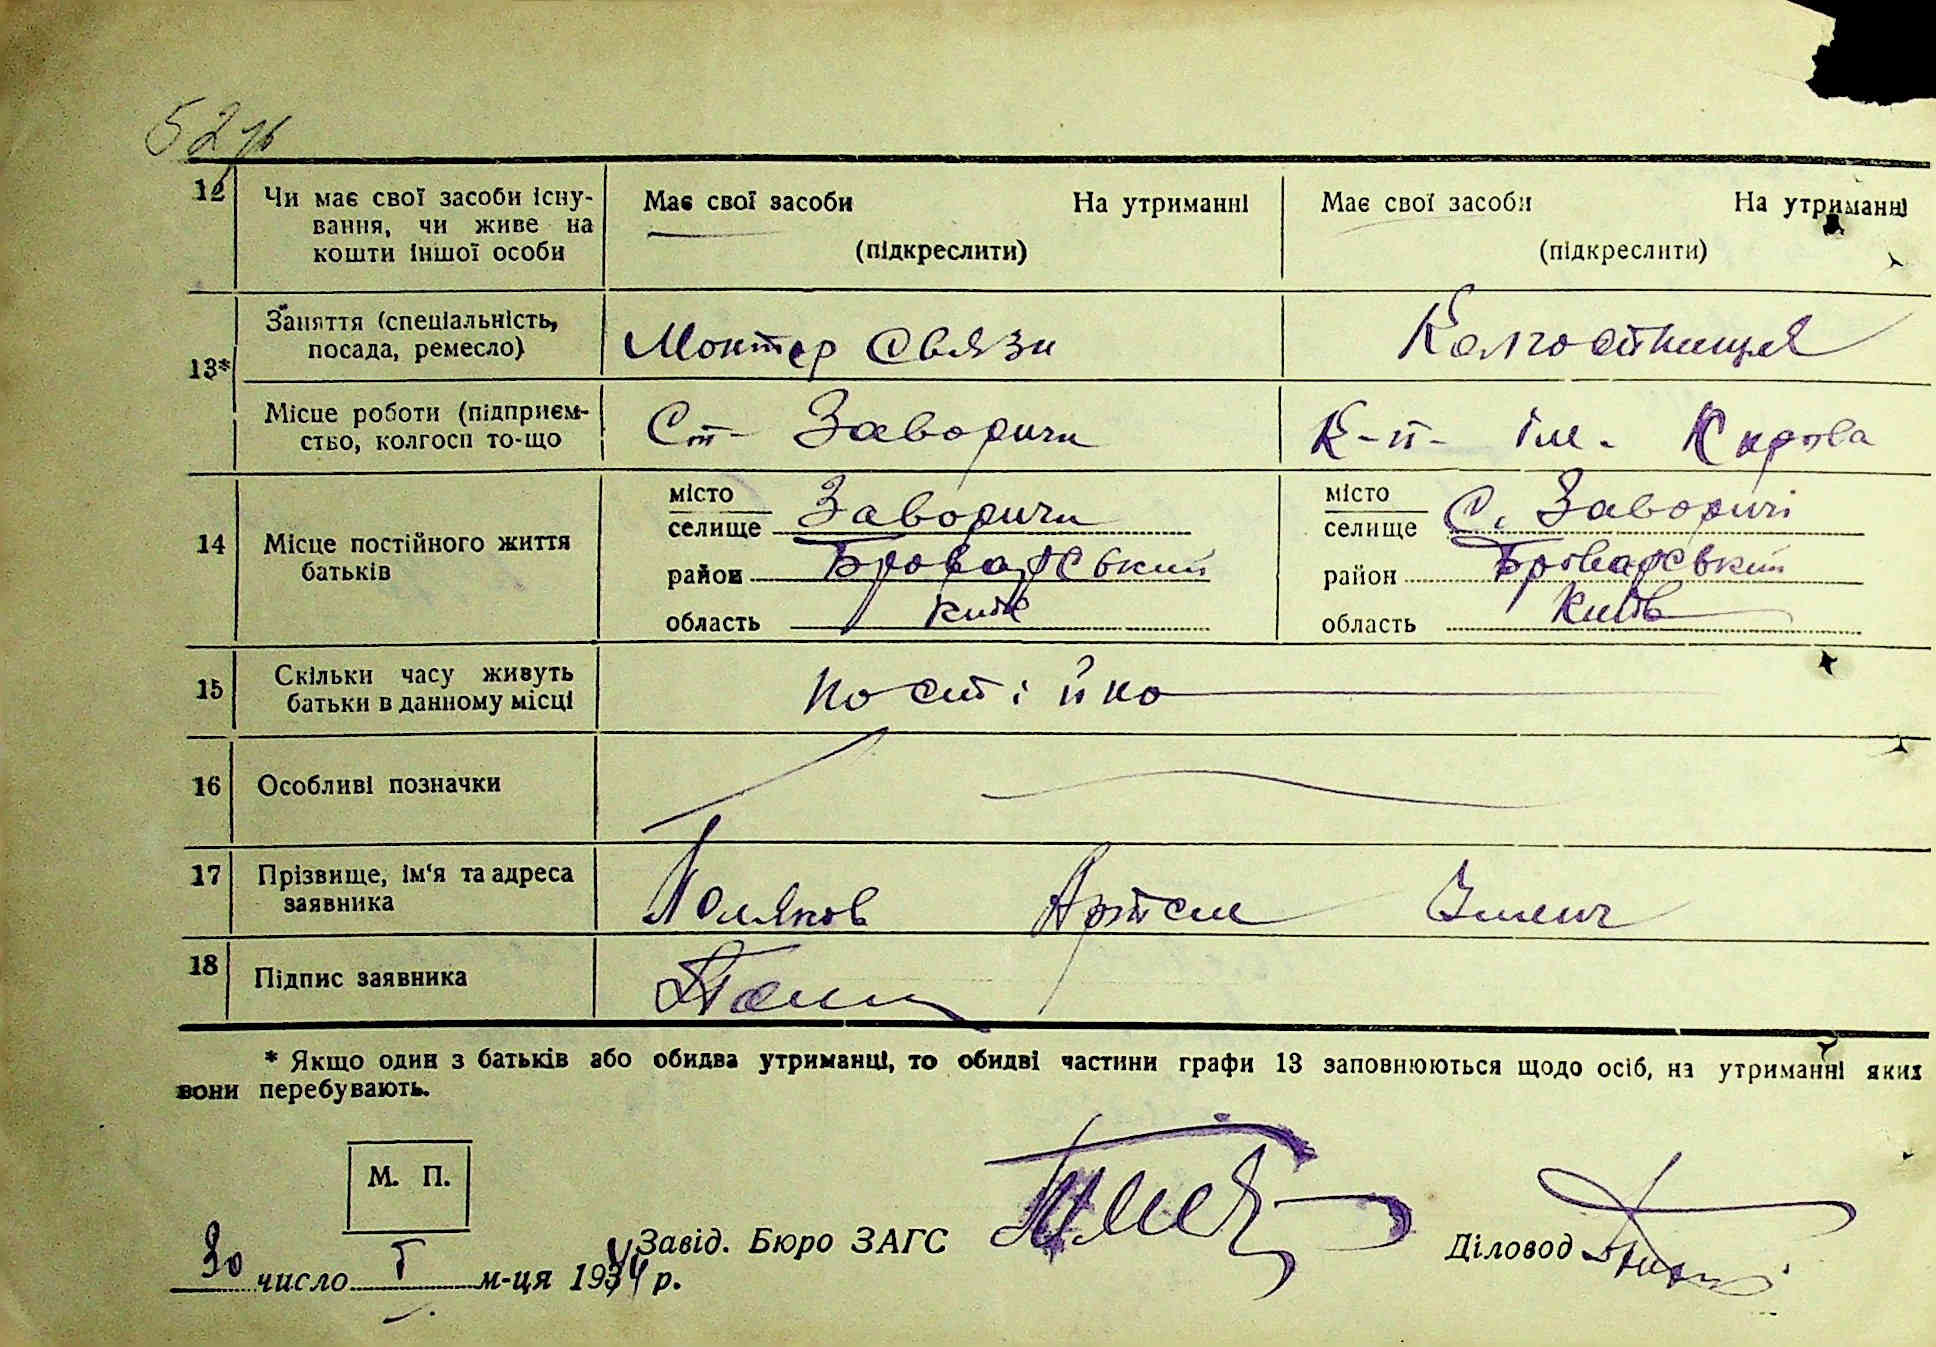 12 Чи має свої засоби існу- Має свої засоби На утриманні Має свої засоби На утриманні
вання, чи живе на
кошти іншої особи (підкреслити) (підкреслити)
13* Заняття (спеціальність, Монтер связи Колгостниця
посада, ремесло)
Місце роботи (підприєм- Ст- Заворичи К-п- ім. Кирова
ство, колгосп то-що
14 Місце постійного життя батьків
місто Заворичи місто С. Заворичі
селище селище
район Броварський район Броварський
область Київ область Київ
15 Скільки часу живуть постійно
батьки в данному місці
16 Особливі позначки
17 Прізвище, ім'я та адреса Поляков Артем
заявника
18 Підпис заявника
* Якщо один з батьків або обидва утриманці, то обидві частини графи 13 заповнюються щодо осіб, на утриманні яких
вони перебувають.
М. П.
Завід. Бюро ЗАГС Діловод
30 число м-ця 1944 р.